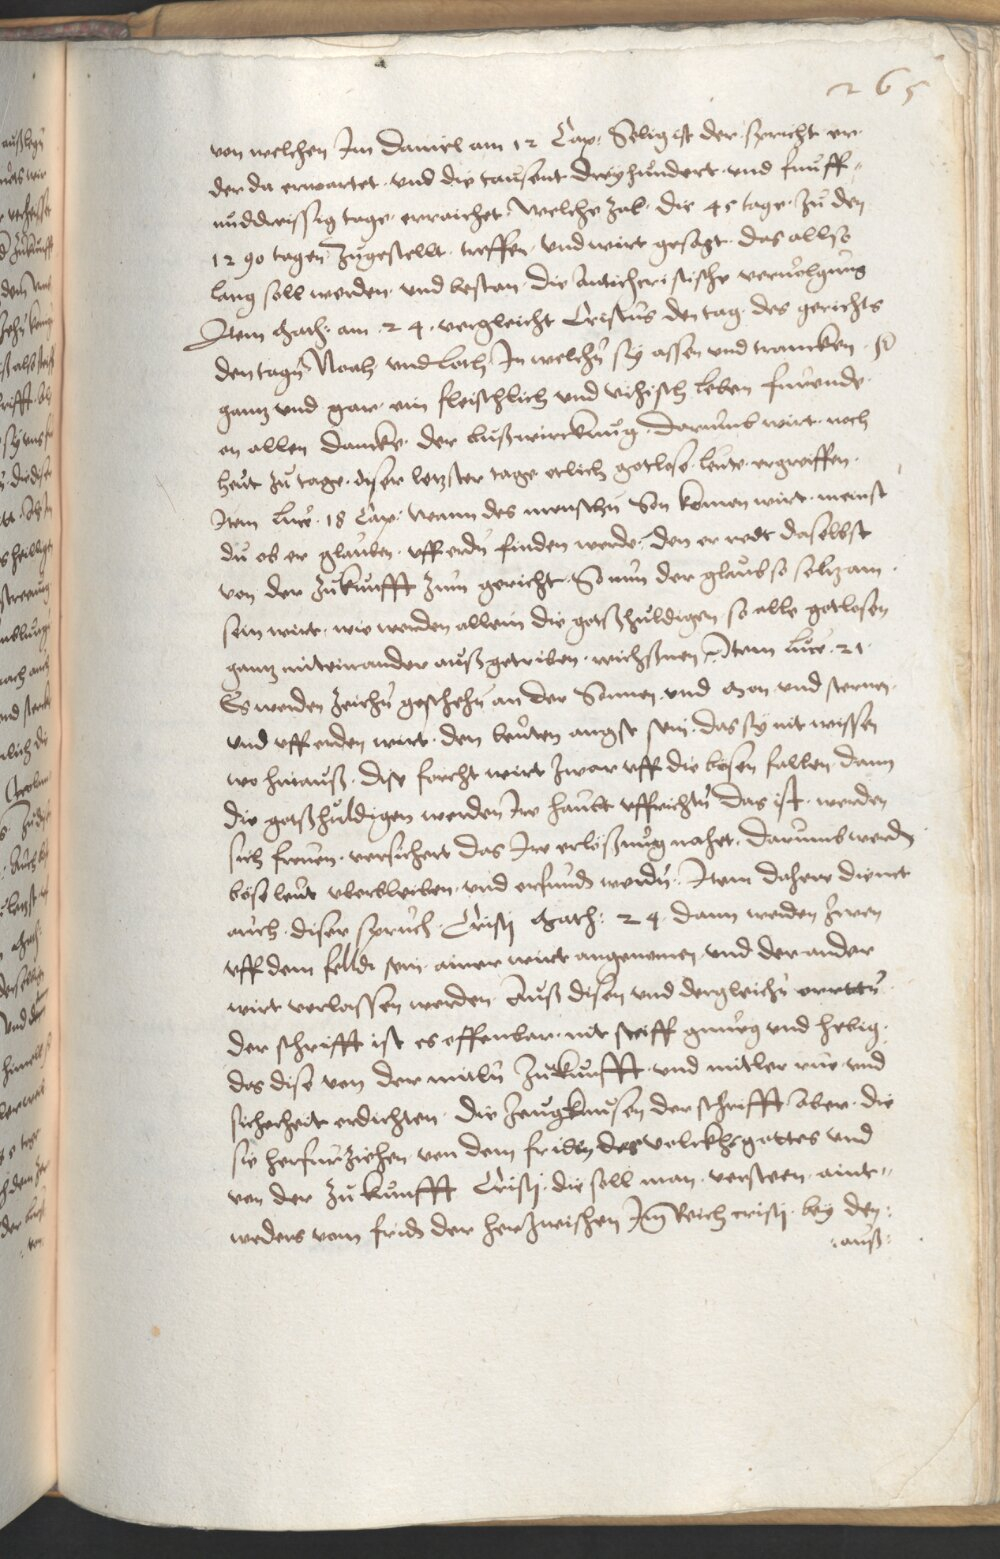 265
von welchen Im Daniel am 12 Cap: Selig ist der spricht er
der da erwartet vnd die tausent dreyhundert vnd funff-
unddreissig tage erraichet. Welche zal die 45 tage zu den
1290 tagen zugestellt treffen vnd wirt gesagt das allso
lang soll werden vnd bestan die Antichristische vervolgung
Item Math: am 24. vergleicht Cristus den tag des gerichts
den tagen Noah vnd Loth In welchen sy assen vnd trancken
gantz vnd gar ein fleischlich vnd vihisch leben furende
on allen dancke der bußwirckung. Darumb wirt noch
heut zu tage diser letzster tage etlich gotlose leute ergreiffen.
Item Luce. 18 Cap: Wann des menschen Son komen wirt meinst
du ob er glauben vff erden finden werde. den er redt daselbst
von der zukunfft zum gericht So nun der glaub so seltzam
sein wirt, wie werden allein die gotßhuldigen so alle gotlosen
gantz miteinander außgetriben Item Luce. 21.
Es werden zeichen geschehen an der Sonnen vnd Mon vnd sternen
vnd vff erden wirt den leuten angst sein das sy nit wissen
wo hinauß. dise forcht wirt zwar vff die bösen fallen dann
die gotßhuldigen werden Ire haubt vffrichten das ist werden
sich freuen versichert das Ire erlößung nahet. darumb werden
böse leut vberbleiben vnd erfunden werden. Item daher dienet
auch diser spruch Cristi Math: 24. dann werden zwen
vff dem felde sein ainer wirt angenomen vnd der ander
wirt verlassen werden. Auß disen vnd dergleichen orrten
der schrifft ist es offenbar nit steiff gnug vnd hebig
das dise von der zukunfft vnd mitler rue vnd
sicherheit erdichten. Die zeugknusen der schrifft aber die
sie herfurziehen von dem friden des volckhs gottes vnd
von der zukunfft Cristi. die soll man versteen aint-
weders vom friden der herzwischen Im Reich cristi bey den
:auß: